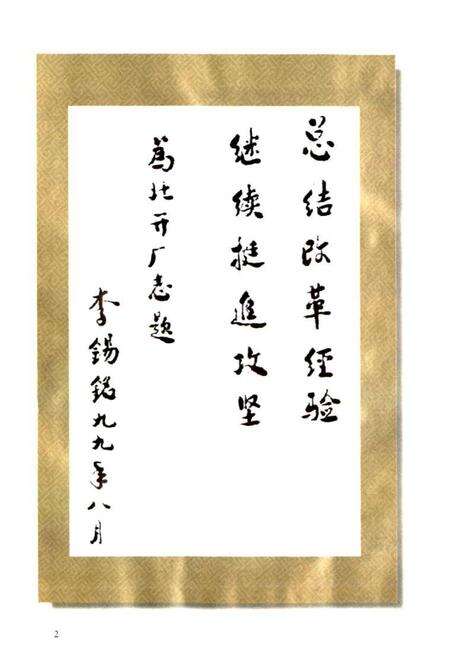 总结改革经验
继续挺進攻坚
为北开厂志题
李锡铭九九年八月
2